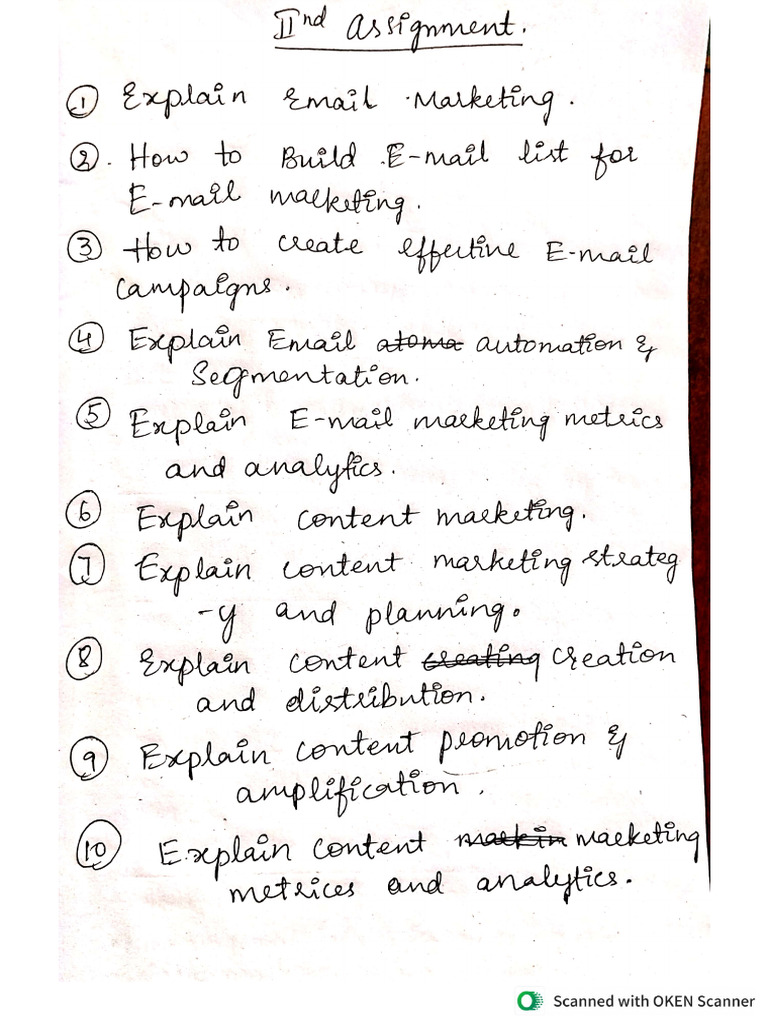 IInd Assignment.
① Explain Email Marketing.
②. How to Build E-mail list for
E-mail marketing.
③ How to create effective E-mail
campaigns.
④ Explain Email atoma automation &
Segmentation.
⑤ Explain E-mail marketing metrics
and analytics.
⑥ Explain content marketing.
⑦ Explain content marketing strateg
-y and planning.
⑧ Explain content creating creation
and distribution.
⑨ Explain content promotion &
amplification.
⑩ Explain content markin marketing
metrices and analytics.
Scanned with OKEN Scanner